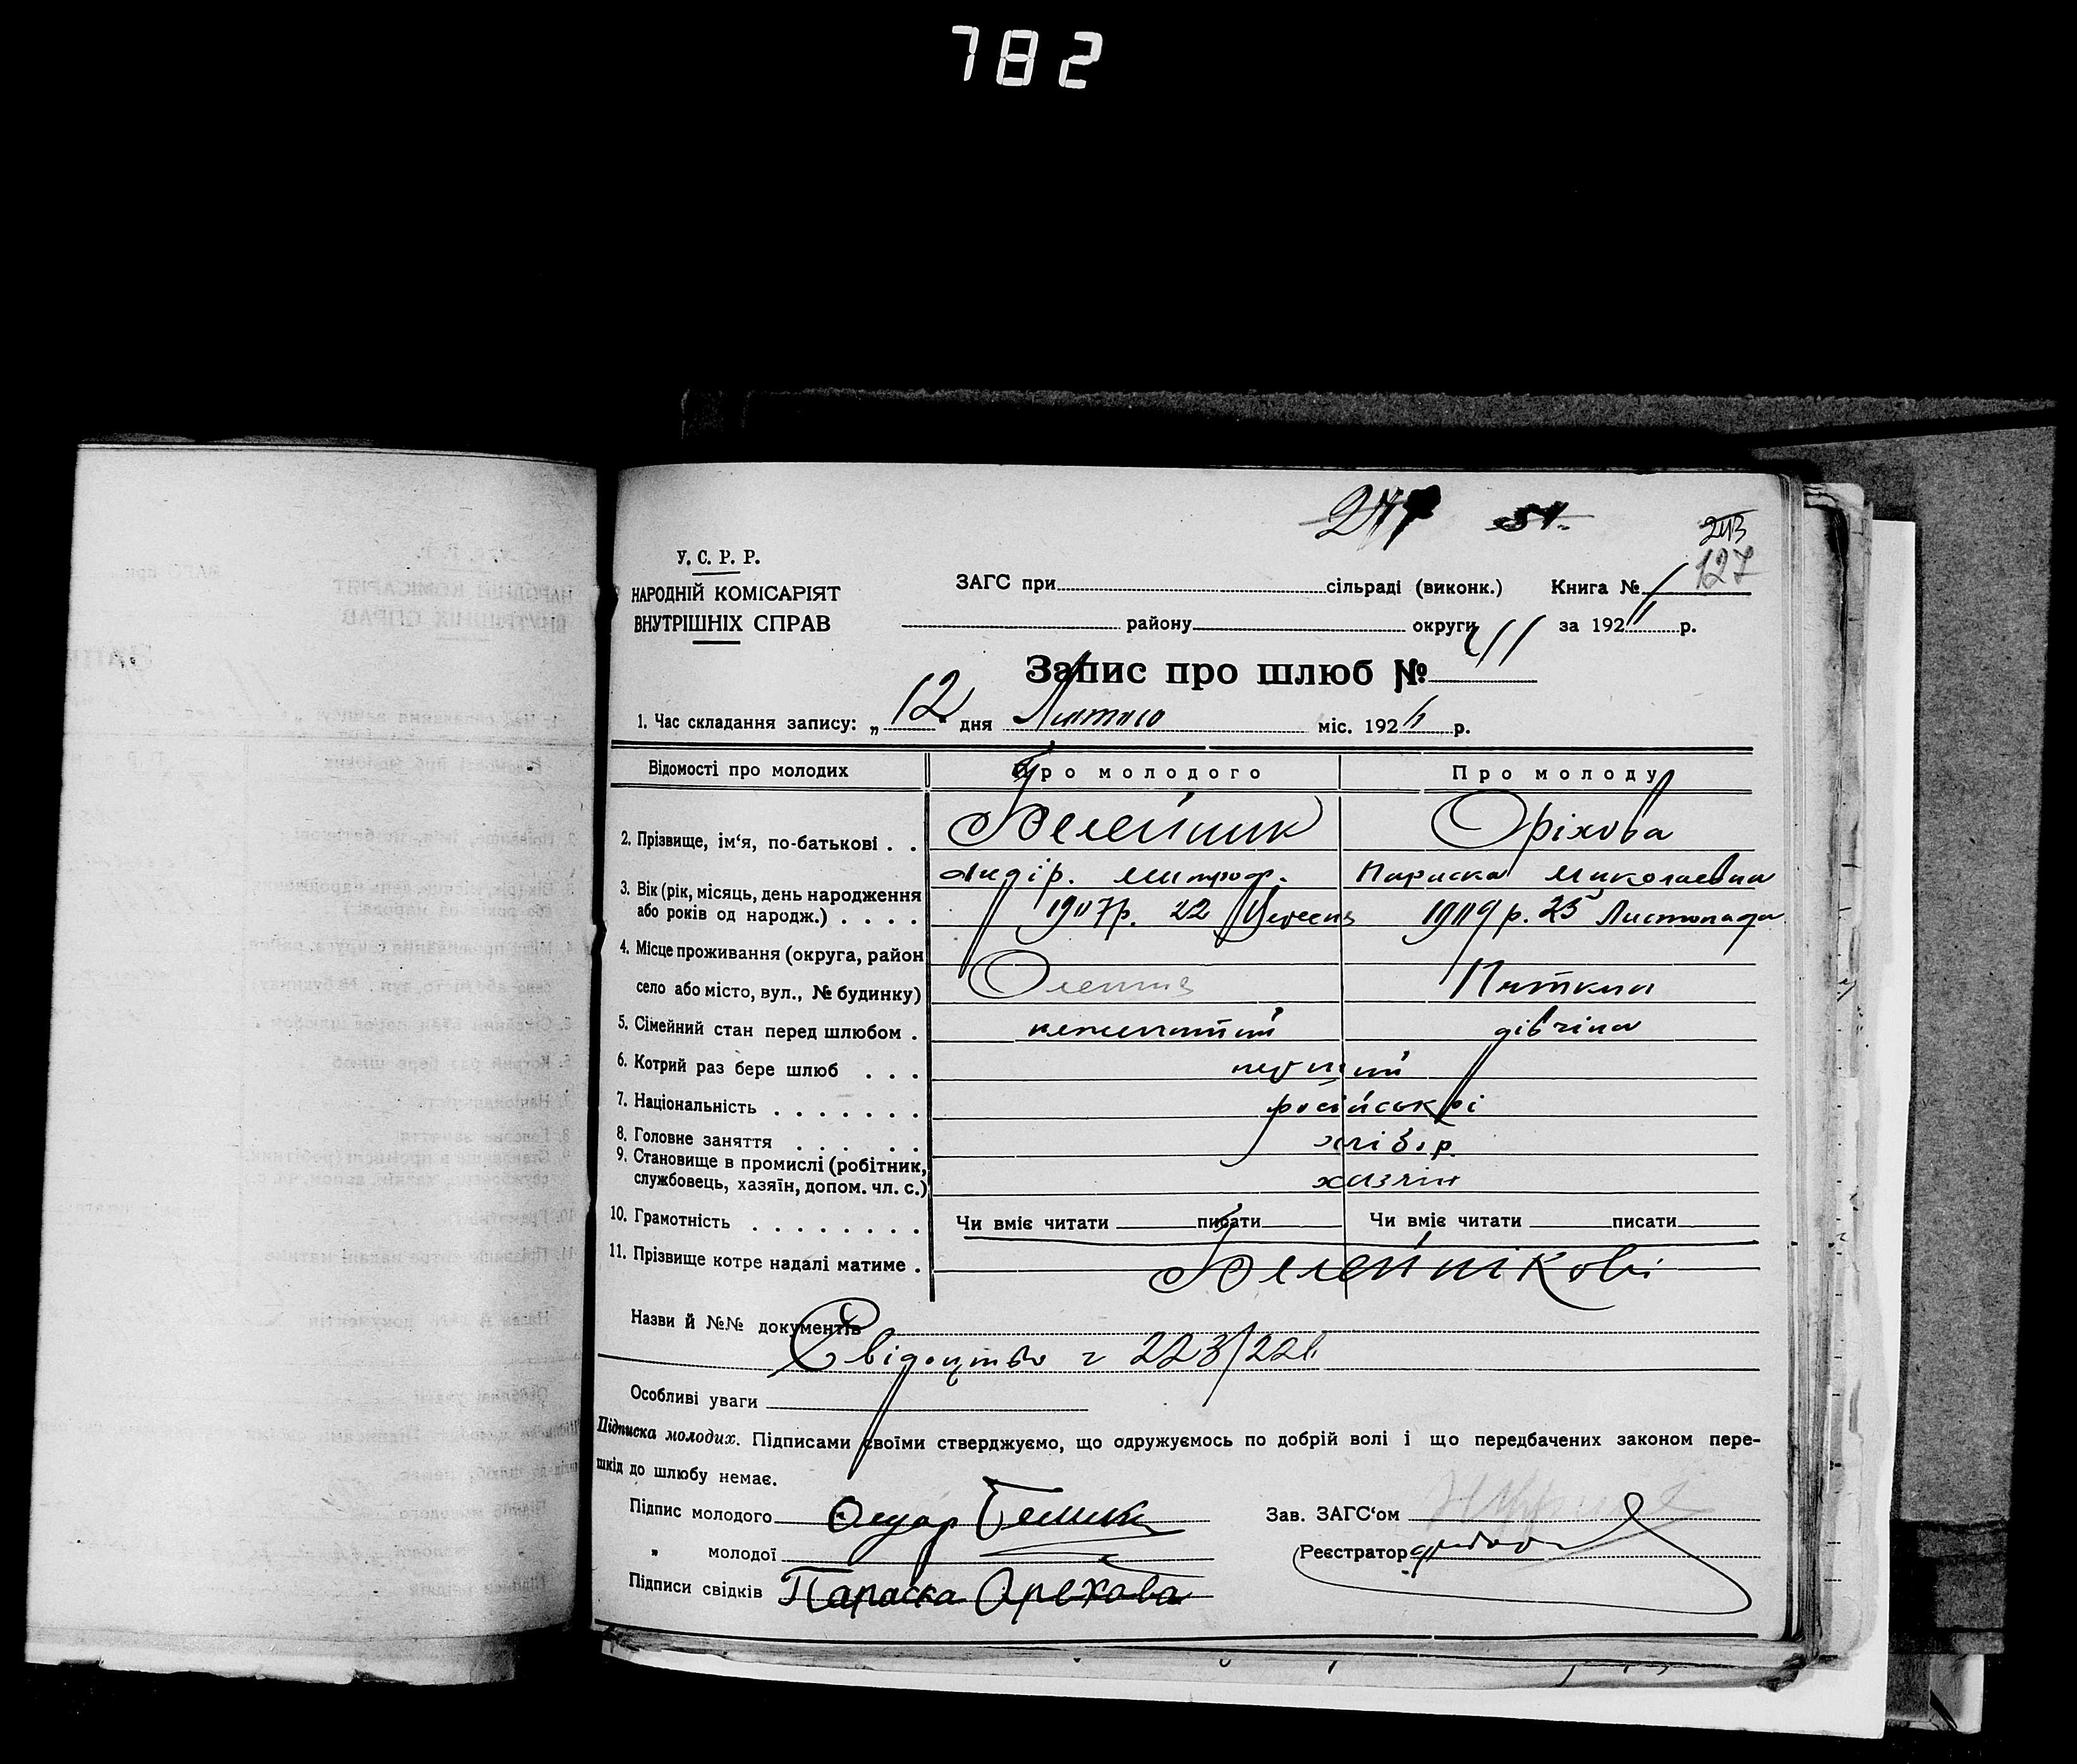 782
51.
243
127
У. С. Р. Р.
НАРОДНІЙ КОМІСАРІЯТ
ВНУТРІШНІХ СПРАВ
ЗАГС при сільраді (виконк.) Книга №
району округи за 192 р.
Запис про шлюб № 11
1. Час складання запису: „12" дня Лютого міс. 1926 р.
Відомості про молодих Про молодого Про молоду
2. Прізвище, ім‘я, по-батькові . . Оріхова
Митроф. Параска Миколаевна
3. Вік (рік, місяць, день народження
або років од народж.) . . . . 1907 р. 22 Вересня 1909 р. 25 Листопада
4. Місце проживання (округа, район
село або місто, вул., № будинку)
5. Сімейний стан перед шлюбом . нежинатий дівчина
6. Котрий раз бере шлюб . . . перший
7. Національність . . . . . . . російські
8. Головне заняття . . . . . . хлібор.
9. Становище в промислі (робітник,
службовець, хазяїн, допом. чл. с.) хазяїн
10. Грамотність . . . . . . . . Чи вміє читати писати Чи вміє читати писати
11. Прізвище котре надалі матиме .
Назви й №№ документів
Свідоцтво ч 223/226
Особливі уваги
Підписка молодих. Підписами своїми стверджуємо, що одружуємось по добрій волі і що передбачених законом пере-
шкід до шлюбу немає.
Підпис молодого Зав. ЗАГС‘ом
„ молодої Реєстратор
Підписи свідків Параска Орехова